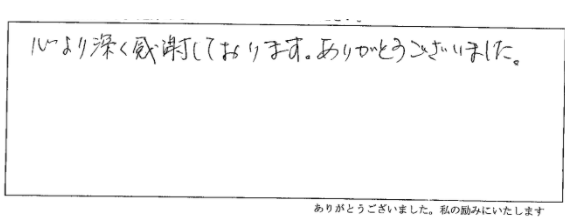 心より深く感謝しております。ありがとうございました。
ありがとうございました。私の励みにいたします